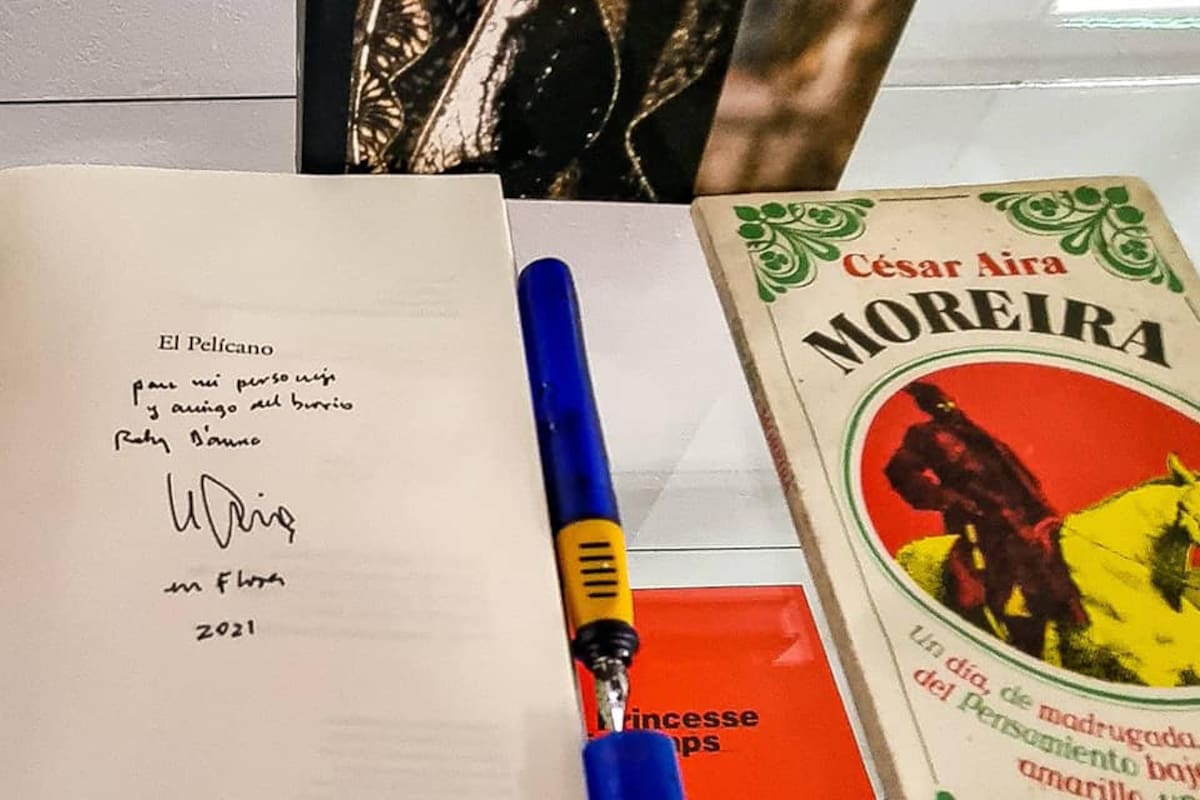 El Pelícano
para mi personaje
y amigo del barrio
Roby D'Anna
en Flores
2021
César Aira
MOREIRA
Un día, de madrugada
del Pensamiento baj
amarillo, u
rincesse
ps